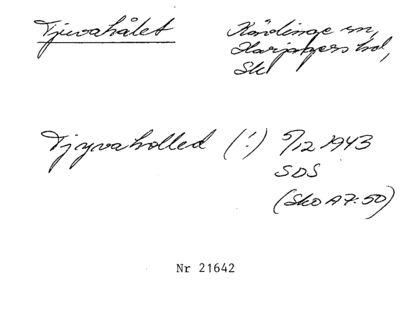 Tjuvahålet
Kävlinge sn,
Harjagers hd,
Sk
Tjyvaholled (!) 5/12 1943
SDS
(Sko A7:50)
Nr 21642